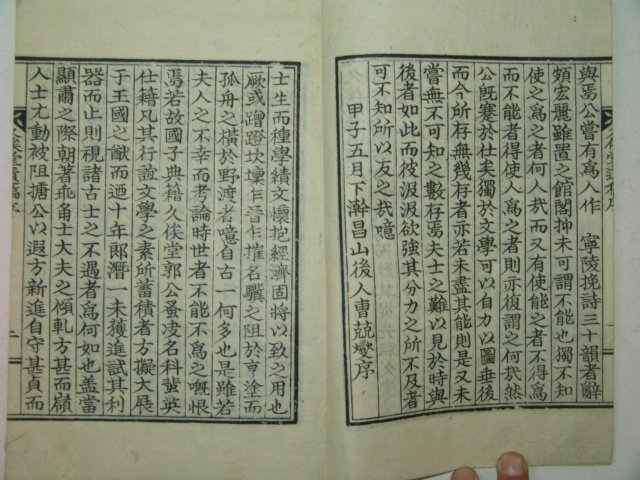 與焉公嘗有爲人作　寧陵挽詩三十韻者辭
頗宏麗雖置之館閣抑未可謂不能也獨不知
使之爲之者何人哉而又有使能之者不得爲
而不能者得使人爲之者則亦復謂之何哉然
公旣蹇於仕矣獨於文學可以自力以圖垂後
而今所存無幾存者亦若未盡其能則是又未
嘗無不可知之數存焉夫士之難以見於時與
後者如此而彼汲汲欲強其分力之所不及者
可不知所以反之哉噫
甲子五月下澣昌山後人曺兢燮序
士生而種學績文懷抱經濟固將以致之用也
厥或蹭蹬坎壈乍晉乍摧名驥之阻於亨塗而
孤舟之橫於野渡者噫自古一何多也是雖若
夫人之不幸而考論時世者不能不爲之嘅恨
焉若故國子典籍久俟堂郭公蚤凌名科蜚英
仕籍凡其行誼文學之素所蓄積者方擬大展
于王國之猷而迺十年郎潛一未獲進試其利
器而止則視諸古士之不遇者爲何如也盖當
顯肅之際朝著乖角士大夫之傾軋方甚而嶺
人士尤動被阻搪公以遐方新進自守甚貞而